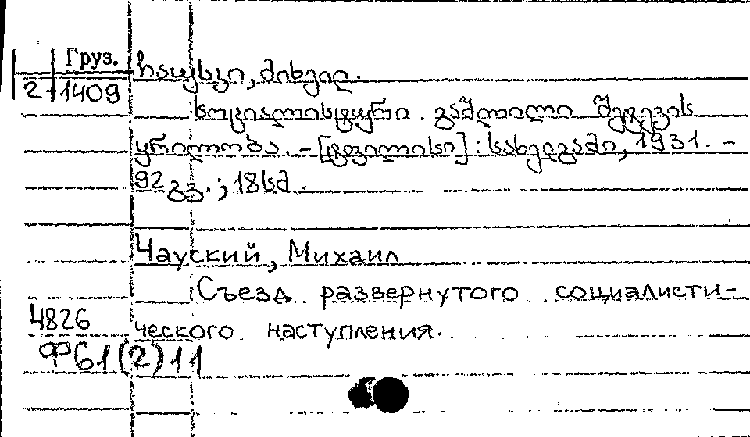 Груз.
2 1409
ჩაუსკი, მიხეილ.
სოციალისტური გაშლილი შეტევის
ყრილობა. – [ტფილისი] : სახელგამი, 1931. –
92 გვ. ; 18 სმ.
Чауский, Михаил
Съезд развернутого социалисти-
ческого наступления.
4826
Ф61(2)11